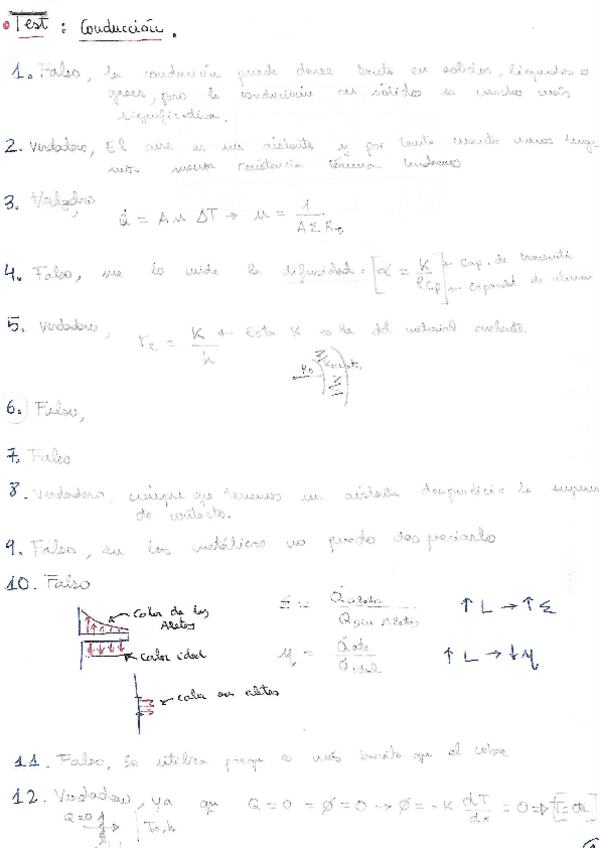 Test : Conducción.
1. Falso, la conducción puede darse tanto en solidos, liquidos o
gases, pero la conducción en sólidos es mucho más
significativa.
2. Verdadero, El aire es un aislante y por tanto cuanto menos
menor resistencia térmica tendremos
3. Verdadero, Q̇ = A u ΔT → u = 1 / (A Σ R)
4. Falso, me lo mide la difusidad. [α = K / ρCp] Cap. de
capacidad de
5. Verdadero, rc = K / h ← Esta K es la del material aislante.
6. Falso,
7. Falso
8. Verdadero, siempre que tenemos un aislante desprecio la
de contacto.
9. Falso, en los metálicos no puedo despreciarlo
10. Falso
Calor de las
Aletas
calor ideal
calor sin aletas
ε = Q̇ aletas / Q̇ sin Aletas ↑ L → ↑ ε
η = Q̇ / Q̇ ideal ↑ L → ↓ η
11. Falso, Se utiliza porque es más barato que el cobre
12. Verdadero, ya que Q = 0 = φ = 0 → φ = -K dT/dx = 0 ⇒
Q = 0 T∞, h